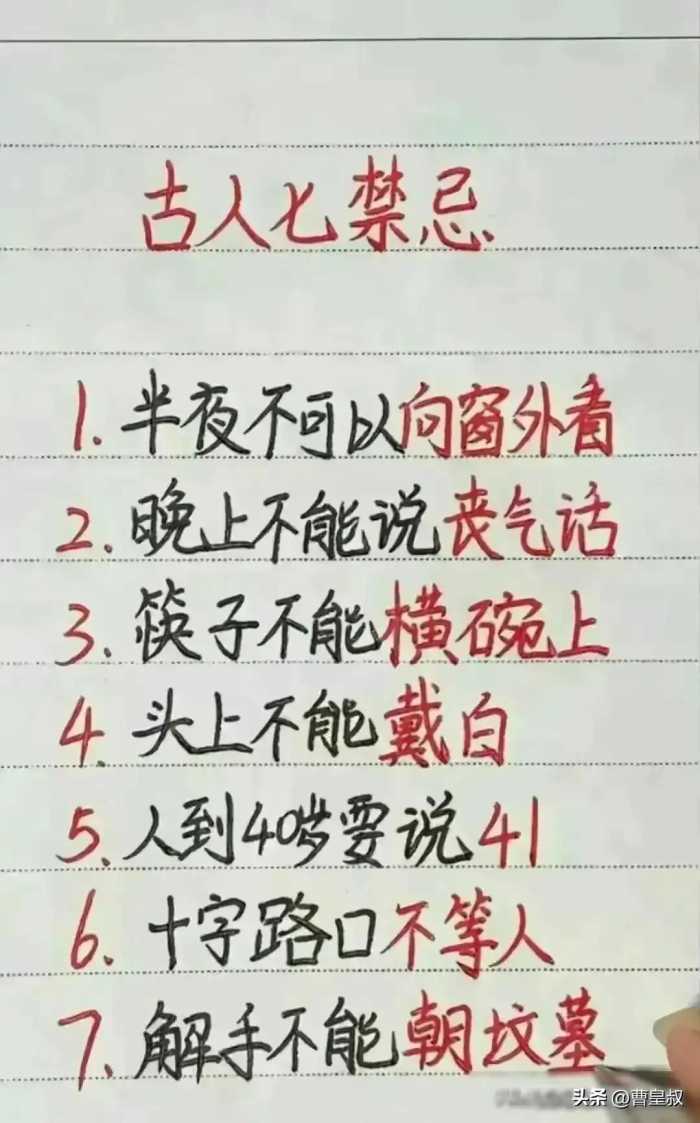 古人七禁忌
1.半夜不可以向窗外看
2.晚上不能说丧气话
3.筷子不能横碗上
4.头上不能戴白
5.人到40岁要说41
6.十字路口不等人
7.解手不能朝坟墓
头条@曹皇叔